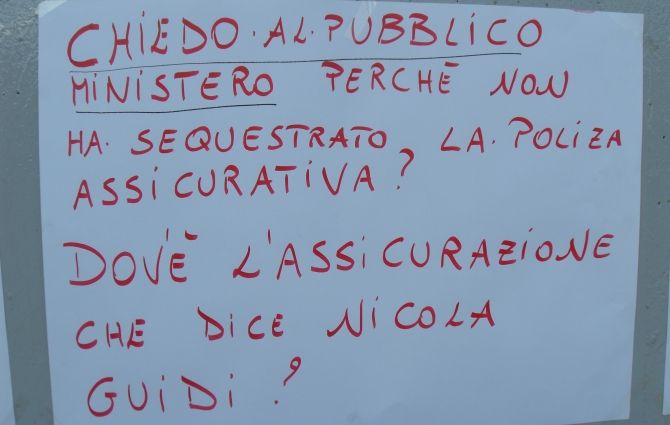 CHIEDO.AL.PUBBLICO
MINISTERO PERCHĒ NON
HA. SEQUESTRATO LA. POLIZA
ASSICURATIVA?
DOV'È L'ASSICURAZIONE
CHE DICE NICOLA
GUIDI?